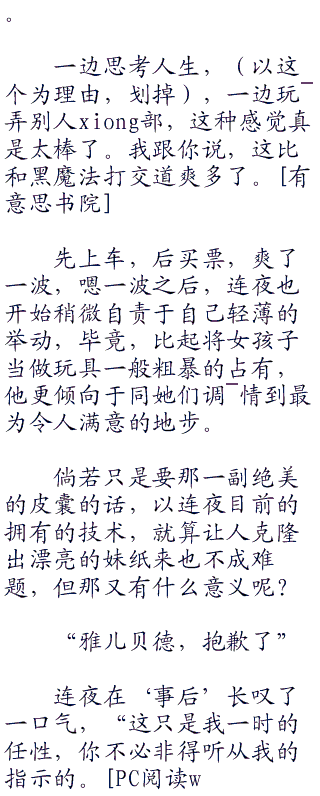 。
一边思考人生，（以这
个为理由，划掉），一边玩¯
弄别人xiong部，这种感觉真
是太棒了。我跟你说，这比
和黑魔法打交道爽多了。[有
意思书院]
先上车，后买票，爽了
一波，嗯一波之后，连夜也
开始稍微自责于自己轻薄的
举动，毕竟，比起将女孩子
当做玩具一般粗暴的占有，
他更倾向于同她们调¯情到最
为令人满意的地步。
倘若只是要那一副绝美
的皮囊的话，以连夜目前的
拥有的技术，就算让人克隆
出漂亮的妹纸来也不成难
题，但那又有什么意义呢？
“雅儿贝德，抱歉了”
连夜在‘事后’长叹了
一口气，“这只是我一时的
任性，你不必非得听从我的
指示的。[PC阅读w